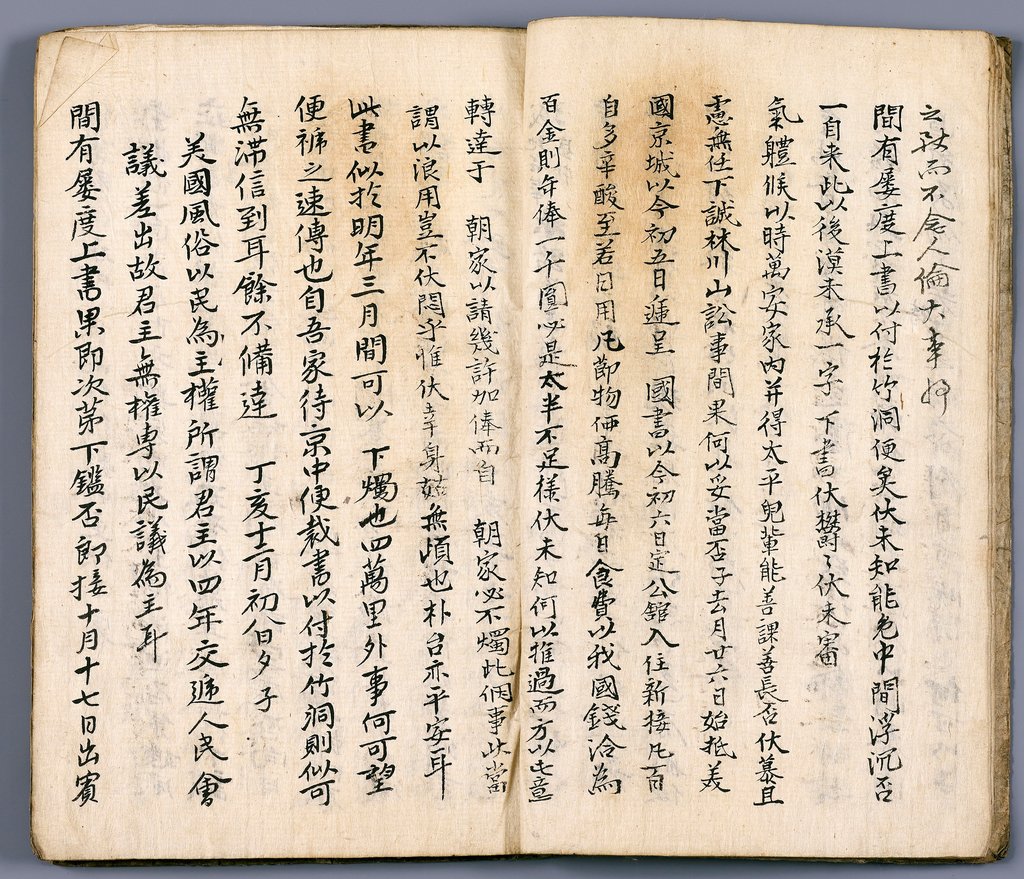 之孜而不念人倫大事好
間有屢度上書以付於竹洞便矣伏未知能免中間浮沉否
一自来此以後漠未承一字 下書伏欝〻伏未審
氣軆候以時萬安家內幷得太平兒輩能善課善長否伏慕且
慮無任下誠林川山訟事間果何以妥當否子去月廿六日始抵美
國京城以今初五日逓呈 國書以今初六日定公舘入住新接凡百
自多辛酸至若日用凡節物価髙騰每日食費以我國錢洽為
百金則年俸一千圓必是太半不足樣伏未知何以推過而方以此意
轉達于 朝家以請幾許加俸而自 朝家必不燭此個事此當
謂以浪用豈不伏悶乎惟伏幸身茲無頉也朴台亦平安耳
此書似於明年三月間可以 下燭也四萬里外事何可望
便褫之速傳也自吾家待京中便裁書以付於竹洞則似可
無滞信到耳餘不備達 丁亥十二月初八日夕子
美國風俗以民為主權所謂君主以四年交遞人民會
議差出故君主無權專以民議為主耳
間有屢度上書果即次苐下鑑否卽接十月十七日出賓